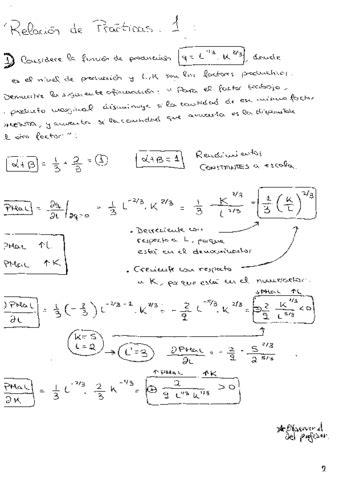 Relación de Prácticas. 1:
1 Considere la función de producción q = L^1/3 · K^2/3, donde
es el nivel de producción y L, K son los factores productivos.
Demuestre la siguiente afirmación: "Para el factor trabajo,
producto marginal disminuye si la cantidad de ese mismo factor
aumenta, y aumenta si la cantidad que aumenta es la disponible
l otro factor":
α+β = 1/3 + 2/3 = 1 α+β=1 Rendimientos
CONSTANTES a escala.
PMaL = ∂q/∂L |∂q=0 = 1/3 L^-2/3 · K^2/3 = 1/3 K^2/3 / L^2/3 = 1/3 (K/L)^2/3
PMaL ↑L
PMaL ↑K
· Decreciente con
respecto a L, porque
está en el denominador
· Creciente con respecto
a K, porque está en el numerador.
↓PMaL ↑L
∂PMaL/∂L = 1/3 (-2/3) L^-2/3-1 · K^2/3 = -2/9 L^-5/3 · K^2/3 = - 2/9 K^2/3 / L^5/3 < 0
K=5
L=2
L'=3 ∂PMaL/∂L = -2/9 · 5^2/3 / 2^5/3
↑PMaL ↑K
∂PMaL/∂K = 1/3 L^-2/3 · 2/3 K^-1/3 = + 2 / 9 L^2/3 K^1/3 > 0
del profesor.